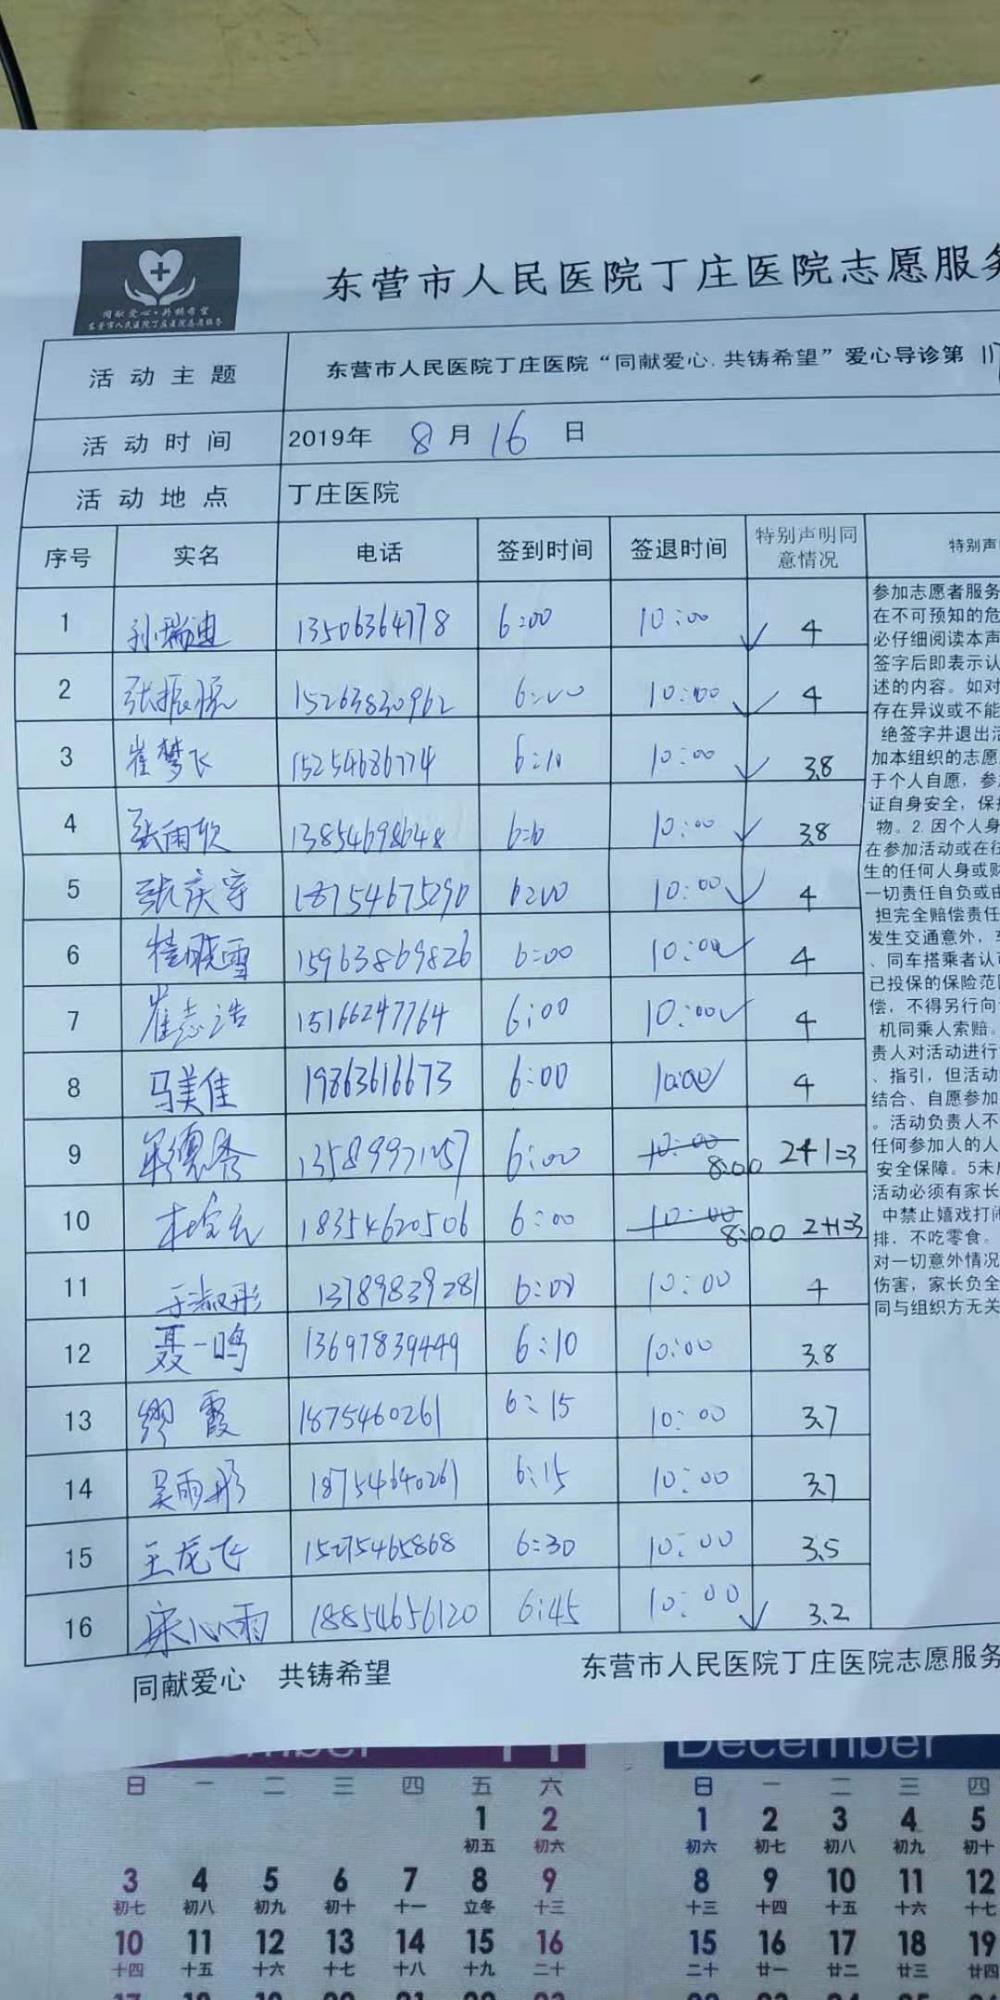 同献爱心·共铸希望
东营市人民医院丁庄医院志愿服务
东营市人民医院丁庄医院志愿服务
活动主题 东营市人民医院丁庄医院“同献爱心.共铸希望”爱心导诊第
活动时间 2019年 8月16日
活动地点 丁庄医院
序号 实名 电话 签到时间 签退时间 特别声明同意情况 特别声
1 孙瑞迪 13506364778 6:00 10:00 ✓ 4
2 15263830962 6:00 10:00 ✓ 4
3 崔梦飞 15254686774 6:10 10:00 ✓ 3.8
4 张雨欣 13854698648 10:00 ✓ 3.8
5 张庆宇 18754675290 6:00 10:00 ✓ 4
6 桂晓雪 15963869826 6:00 10:00 ✓ 4
7 崔志浩 15166247764 6:00 10:00 ✓ 4
8 马美佳 19863616673 6:00 10:00 4
9 6:00 10:00 8:00 2+1=3
10 18354620506 6:00 10:00 8:00 2+1=3
11 于淑彤 13789839281 6:00 10:00 4
12 聂一鸣 13697839449 6:10 10:00 3.8
13 缪霞 1875460261 6:15 10:00 3.7
14 吴雨彤 18754640261 6:15 10:00 3.7
15 王龙飞 15275465868 6:30 10:00 3.5
16 宋心雨 18854656120 6:45 10:00 ✓ 3.2
参加志愿者服务
在不可预知的危
必仔细阅读本声
签字后即表示认
述的内容。如对
存在异议或不能
绝签字并退出活
加本组织的志愿
于个人自愿，参
证自身安全，保
物。2.因个人身
在参加活动或在往
生的任何人身或财
一切责任自负或由
担完全赔偿责任
发生交通意外，
、同车搭乘者认
已投保的保险范
偿，不得另行向
机同乘人索赔。
责人对活动进行
、指引，但活动
结合、自愿参加
。活动负责人不
任何参加人的人
安全保障。5未
活动必须有家长
中禁止嬉戏打闹
排，不吃零食。
对一切意外情况
伤害，家长负全
同与组织方无关
同献爱心 共铸希望 东营市人民医院丁庄医院志愿服务
11
日 一 二 三 四 五 六
1 2
初五 初六
3 4 5 6 7 8 9
初七 初八 初九 初十 十一 立冬 十三
10 11 12 13 14 15 16
十四 十五 十六 十七 十八 十九 二十
December
日 一 二 三 四
1 2 3 4 5
初六 初七 初八 初九 初十
8 9 10 11 12
十三 十四 十五 十六 十七
15 16 17 18 19
二十 廿一 廿二 廿三 廿四